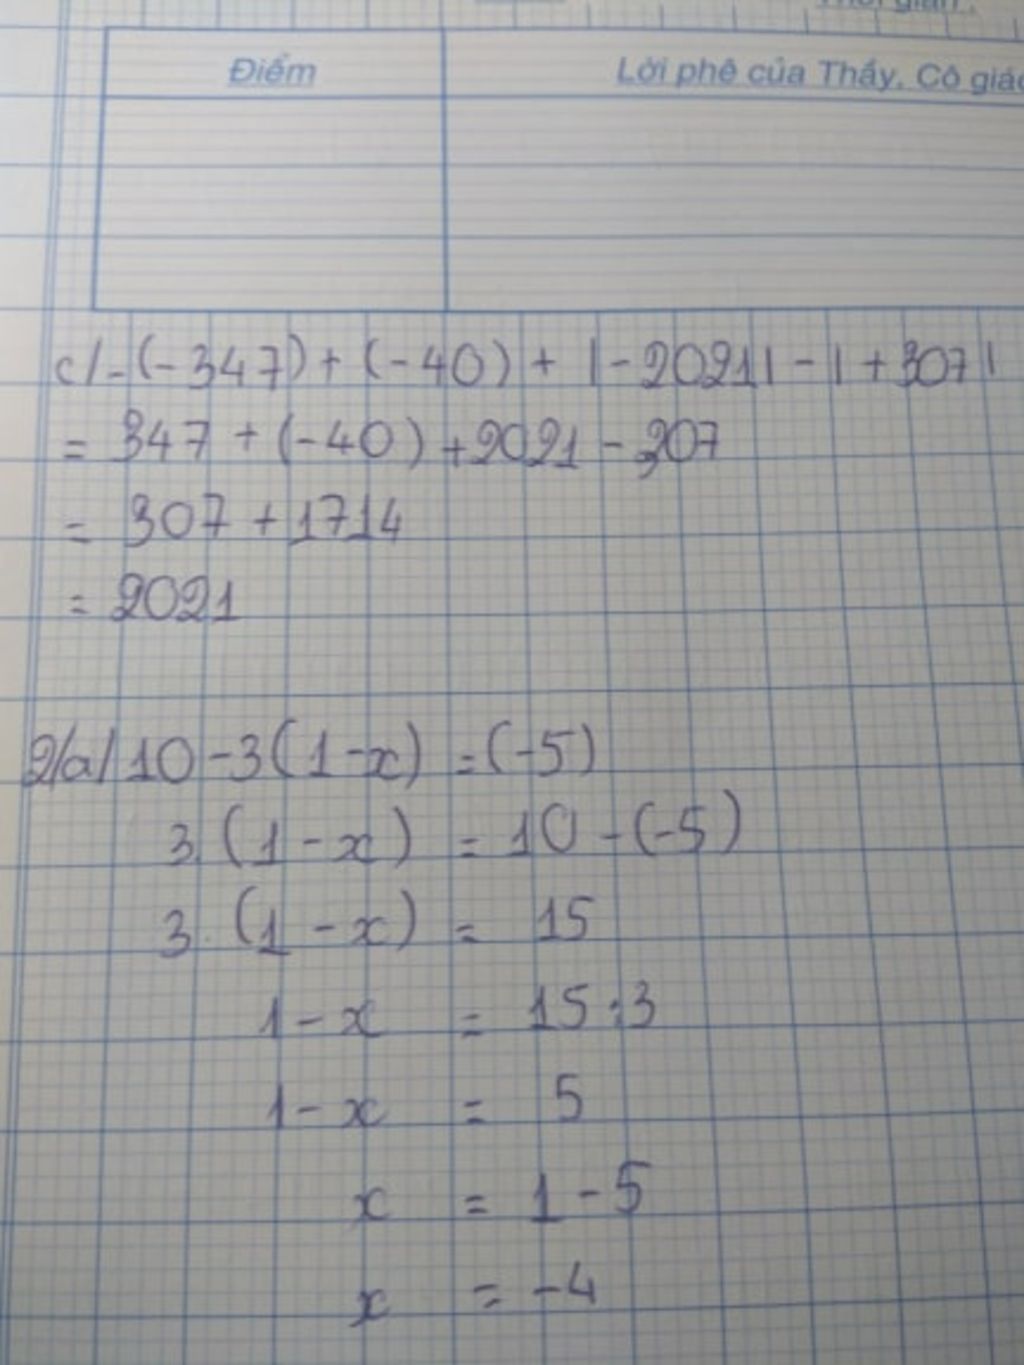 Điểm
Lời phê của Thầy, Cô giáo
c/ -(-347) + (-40) + |-2021| - |+307|
= 347 + (-40) + 2021 - 307
= 307 + 1714
= 2021
2/a/ 10 - 3(1 - x) = (-5)
3.(1 - x) = 10 - (-5)
3.(1 - x) = 15
1 - x = 15 : 3
1 - x = 5
x = 1 - 5
x = -4